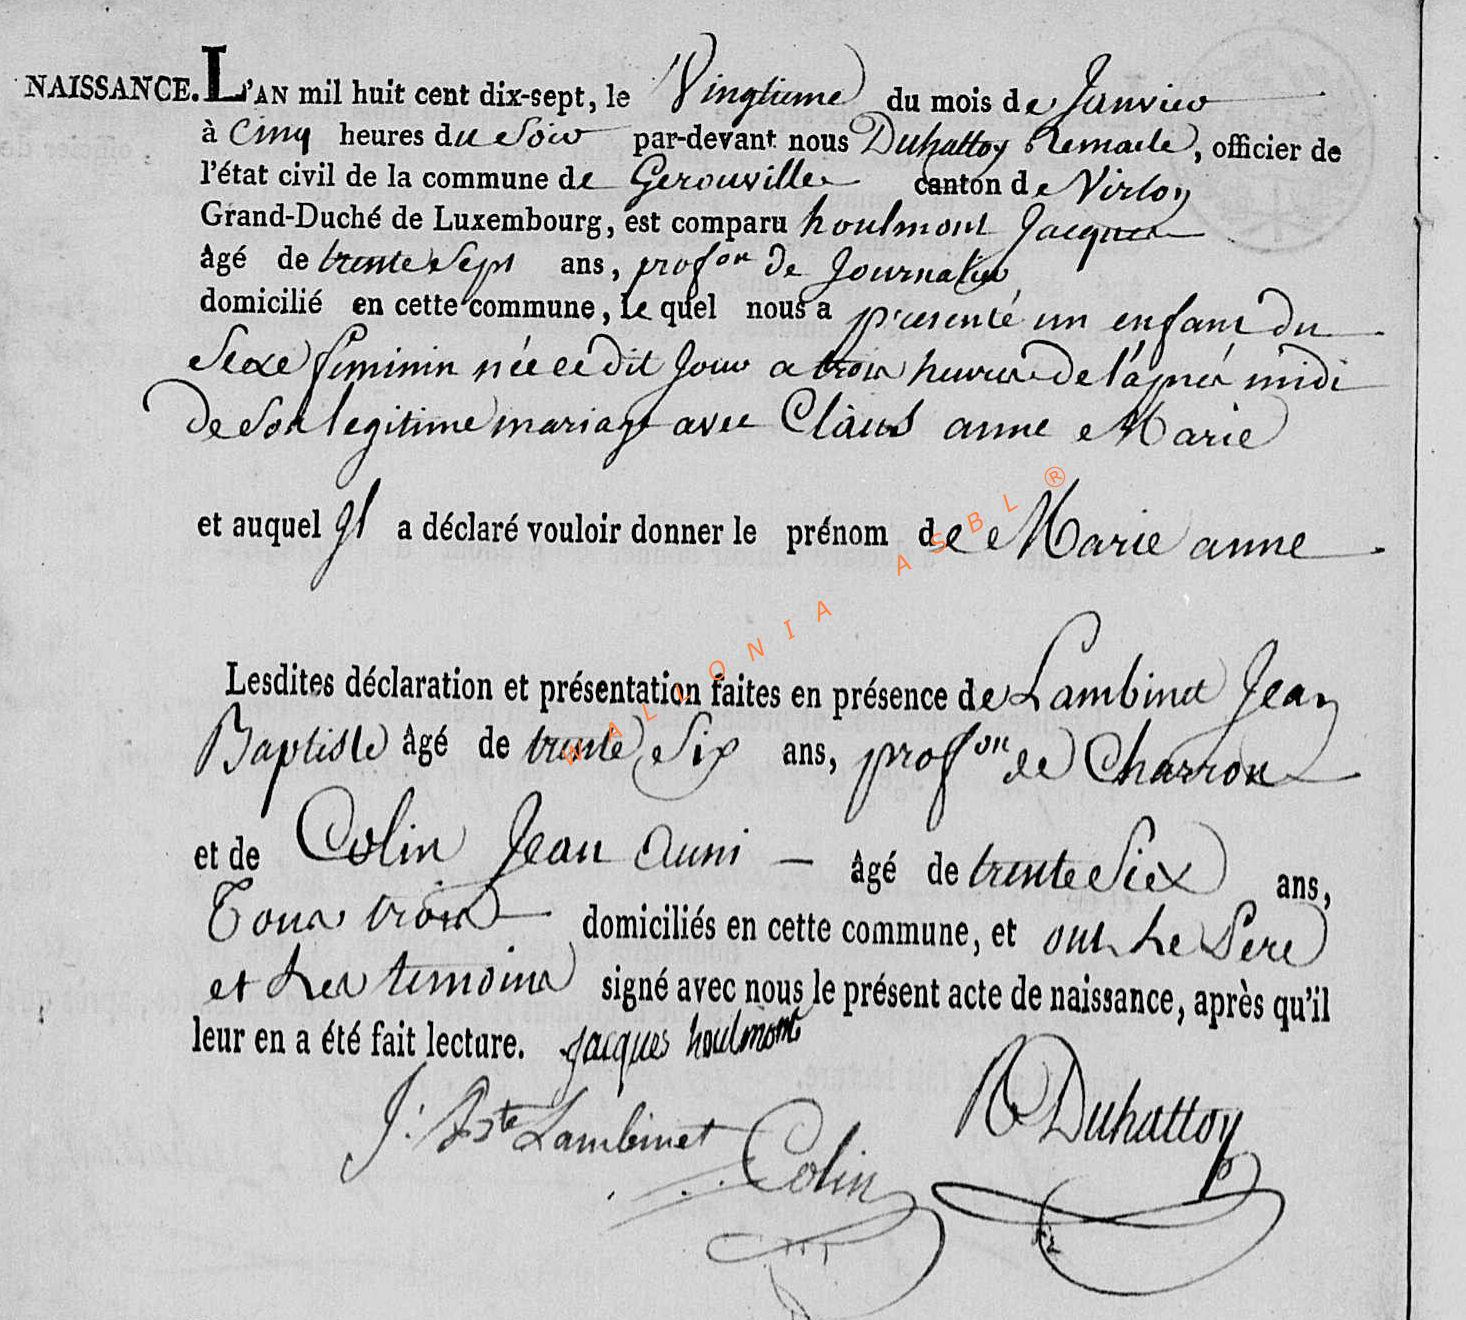 NAISSANCE. L'AN mil huit cent dix-sept, le Vingtieme du mois de Janvier
à Cinq heures du Soir par-devant nous Duhattoy Remacle, officier de
l'état civil de la commune de Gerouville canton de Virton
Grand-Duché de Luxembourg, est comparu houlmont Jacques
âgé de trente Sept ans, profon de Journalier
domicilié en cette commune, le quel nous a presenté un enfant du
Sexe feminin née ce dit Jour a trois heures de l'après midi
de Son legitime mariage avec Claus anne Marie
et auquel Il a déclaré vouloir donner le prénom de Marie anne
Lesdites déclaration et présentation faites en présence de Lambinet Jean
Baptiste âgé de trente Six ans, profon de Charron
et de Colin Jean âgé de trente Six ans,
Tous trois domiciliés en cette commune, et ont Le Pere
et Les temoins signé avec nous le présent acte de naissance, après qu'il
leur en a été fait lecture. Jacques houlmont
J: Bte Lambinet Colin R Duhattoy
WALLONIA ASBL ®